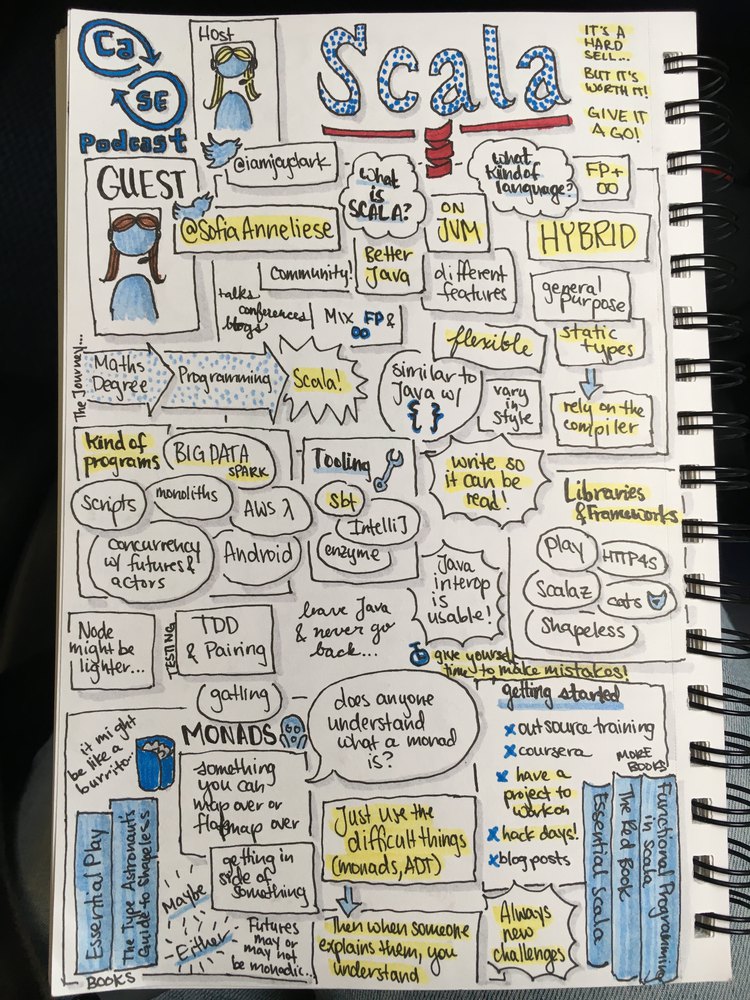 Ca
SE
Podcast
Host
Scala
IT'S A
HARD
SELL...
BUT IT'S
WORTH IT!
GIVE IT
A GO!
@iamjoyclark
GUEST
@SofiaAnneliese
What
is
SCALA?
what
kind of
language?
FP +
OO
ON
JVM
HYBRID
Community!
talks
conferences
blogs
Better
Java
different
features
general
purpose
Mix FP &
OO
flexible
static
types
rely on the
compiler
The Journey...
Maths
Degree
Programming
Scala!
similar to
Java w/
{ }
vary
in
style
kind of
programs
BIG DATA
SPARK
scripts
monoliths
AWS λ
concurrency
w/ futures &
actors
Android
Tooling
sbt
IntelliJ
enzyme
write so
it can be
read!
Libraries
& Frameworks
play
HTTP4S
Scalaz
cats
Shapeless
Java
interop
is
usable!
Node
might be
lighter...
TESTING
TDD
& Pairing
gatling
leave Java
& never go
back...
give yourself
time to make mistakes!
getting started
x outsource training
x coursera
x have a
project to
work on
x hack days!
x blog posts
MORE
BOOKS
Essential Scala
The Red Book
Functional Programming
in Scala
it might
be like a
burrito...
MONADS
does anyone
understand
what a monad
is?
something
you can
map over or
flatmap over
getting in
side of
something
Maybe
Either
Futures
may or may
not be monadic...
Just use the
difficult things
(monads, ADT)
Then when someone
explains them, you
understand
Always
new
challenges
Essential Play
The Type Astronaut's
Guide to Shapeless
BOOKS